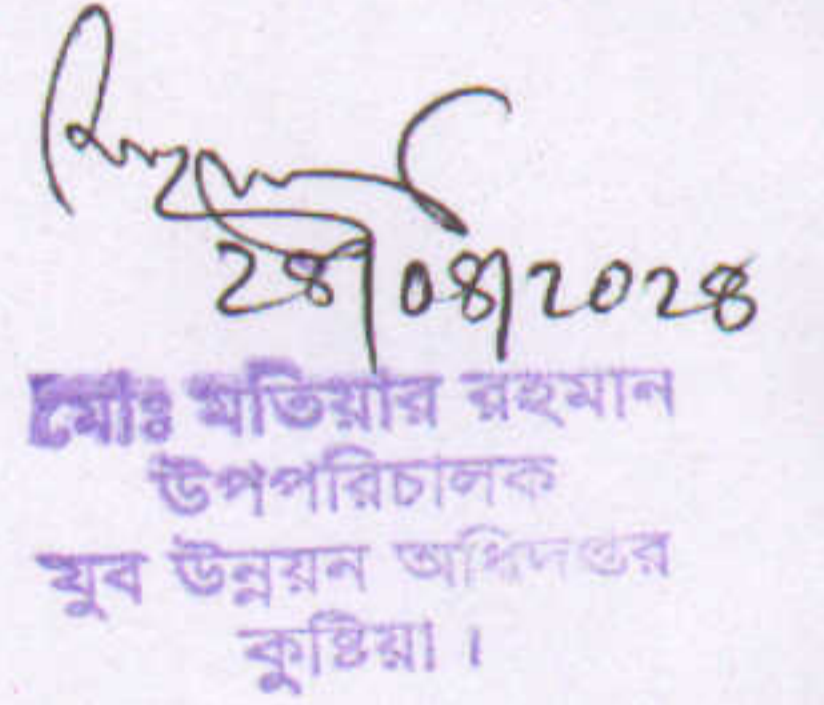 ২৪/০৪/২০২৪
মোঃ মতিয়ার রহমান
উপপরিচালক
যুব উন্নয়ন অধিদপ্তর
কুষ্টিয়া।